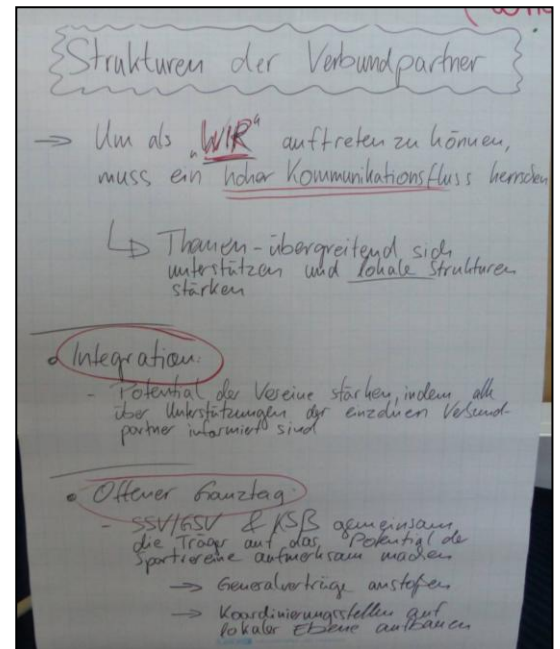 Strukturen der Verbundpartner
→ Um als „WIR“ auftreten zu können,
muss ein hoher Kommunikationsfluss herrschen
↳ Themen-übergreitend sich
unterstützen und lokale Strukturen
stärken
• Integration:
- Potential der Vereine stärken, indem alle
über Unterstützungen der einzelnen Verbund-
partner informiert sind
• Offener Ganztag:
- SSV/GSV & KSB gemeinsam
die Träger auf das Potential de
Sportvereine aufmerksam machen
→ Generalverträge anstoßen
→ Koordinierungsstellen auf
lokaler Ebene aufbauen